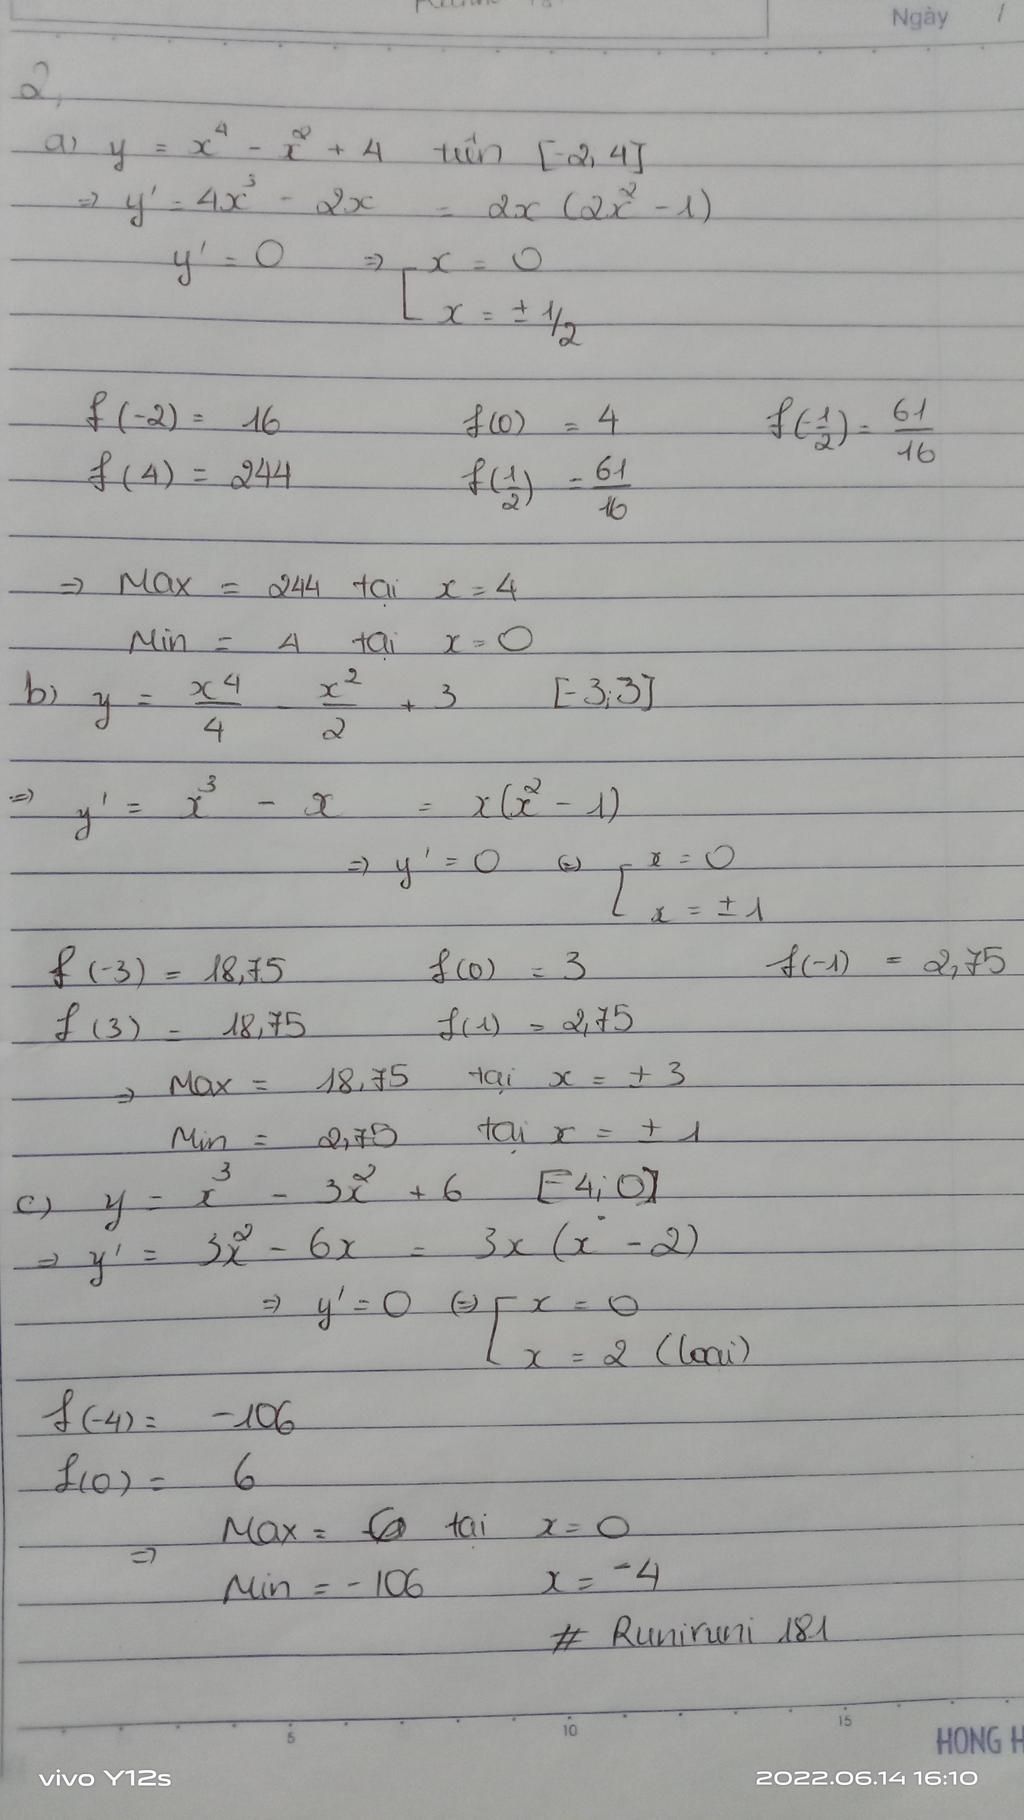 Ngày /
2,
a) y = x⁴ - x² + 4 trên [-2, 4]
=> y' = 4x³ - 2x = 2x (2x² - 1)
y' = 0 => [ x = 0
x = ± 1/2
f(-2) = 16 f(0) = 4 f(-1/2) = 61/16
f(4) = 244 f(1/2) = 61/16
=> Max = 244 tại x = 4
Min = 4 tại x = 0
b) y = x⁴/4 - x²/2 + 3 [-3;3]
=> y' = x³ - x = x(x² - 1)
=> y' = 0 (=) [ x = 0
x = ± 1
f(-3) = 18,75 f(0) = 3 f(-1) = 2,75
f(3) = 18,75 f(1) = 2,75
=> Max = 18,75 tại x = ± 3
Min = 2,75 tại x = ± 1
c) y = x³ - 3x² + 6 [-4; 0]
=> y' = 3x² - 6x = 3x (x - 2)
=> y' = 0 (=) [ x = 0
x = 2 (loại)
f(-4) = -106
f(0) = 6
=> Max = 6 tại x = 0
Min = -106 x = -4
# Runiruni 181
5 10 15
HONG H
vivo Y12s 2022.06.14 16:10